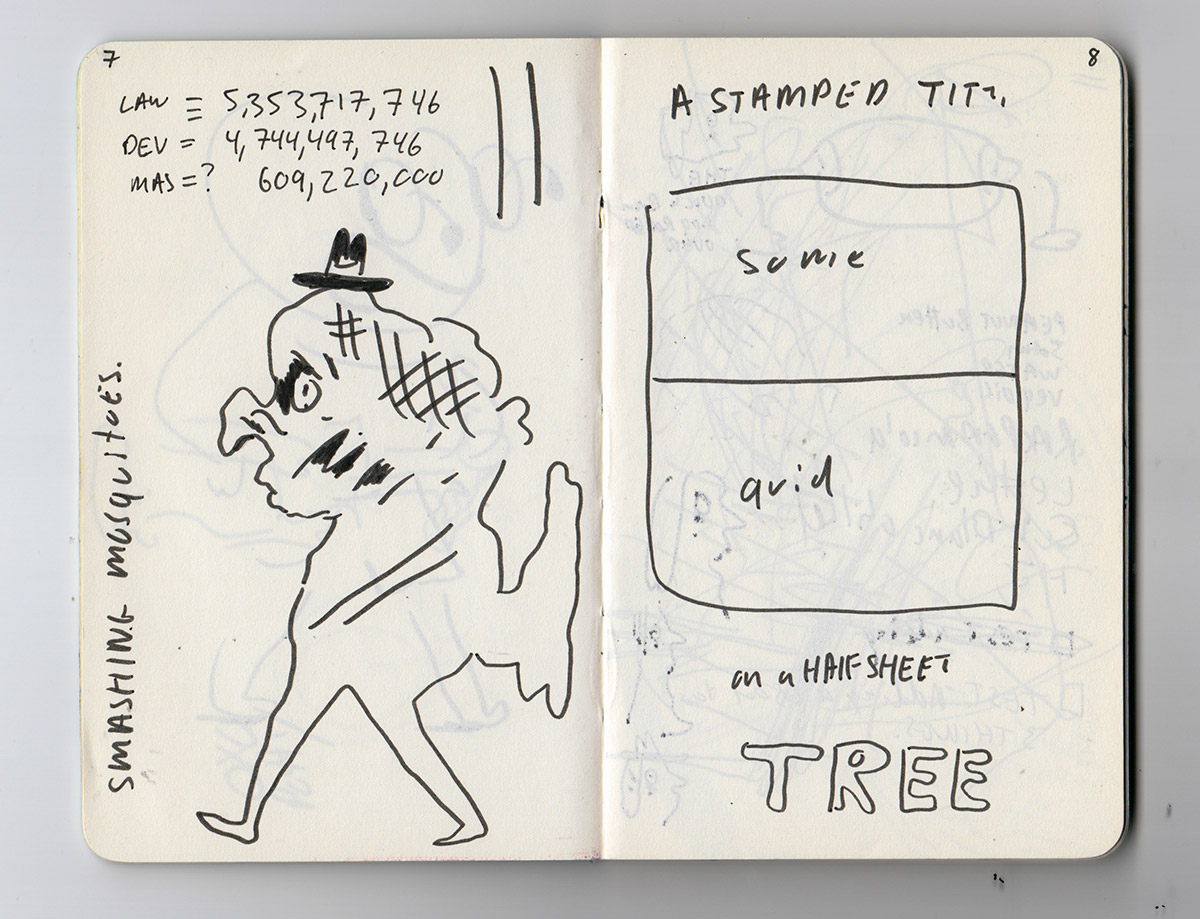 7
LAW = 5,353,717,746
DEV = 4,744,497,746
MAS =? 609,220,000
SMASHING mosquitoes.
8
A STAMPED
some
quid
on a HALF SHEET
TREE